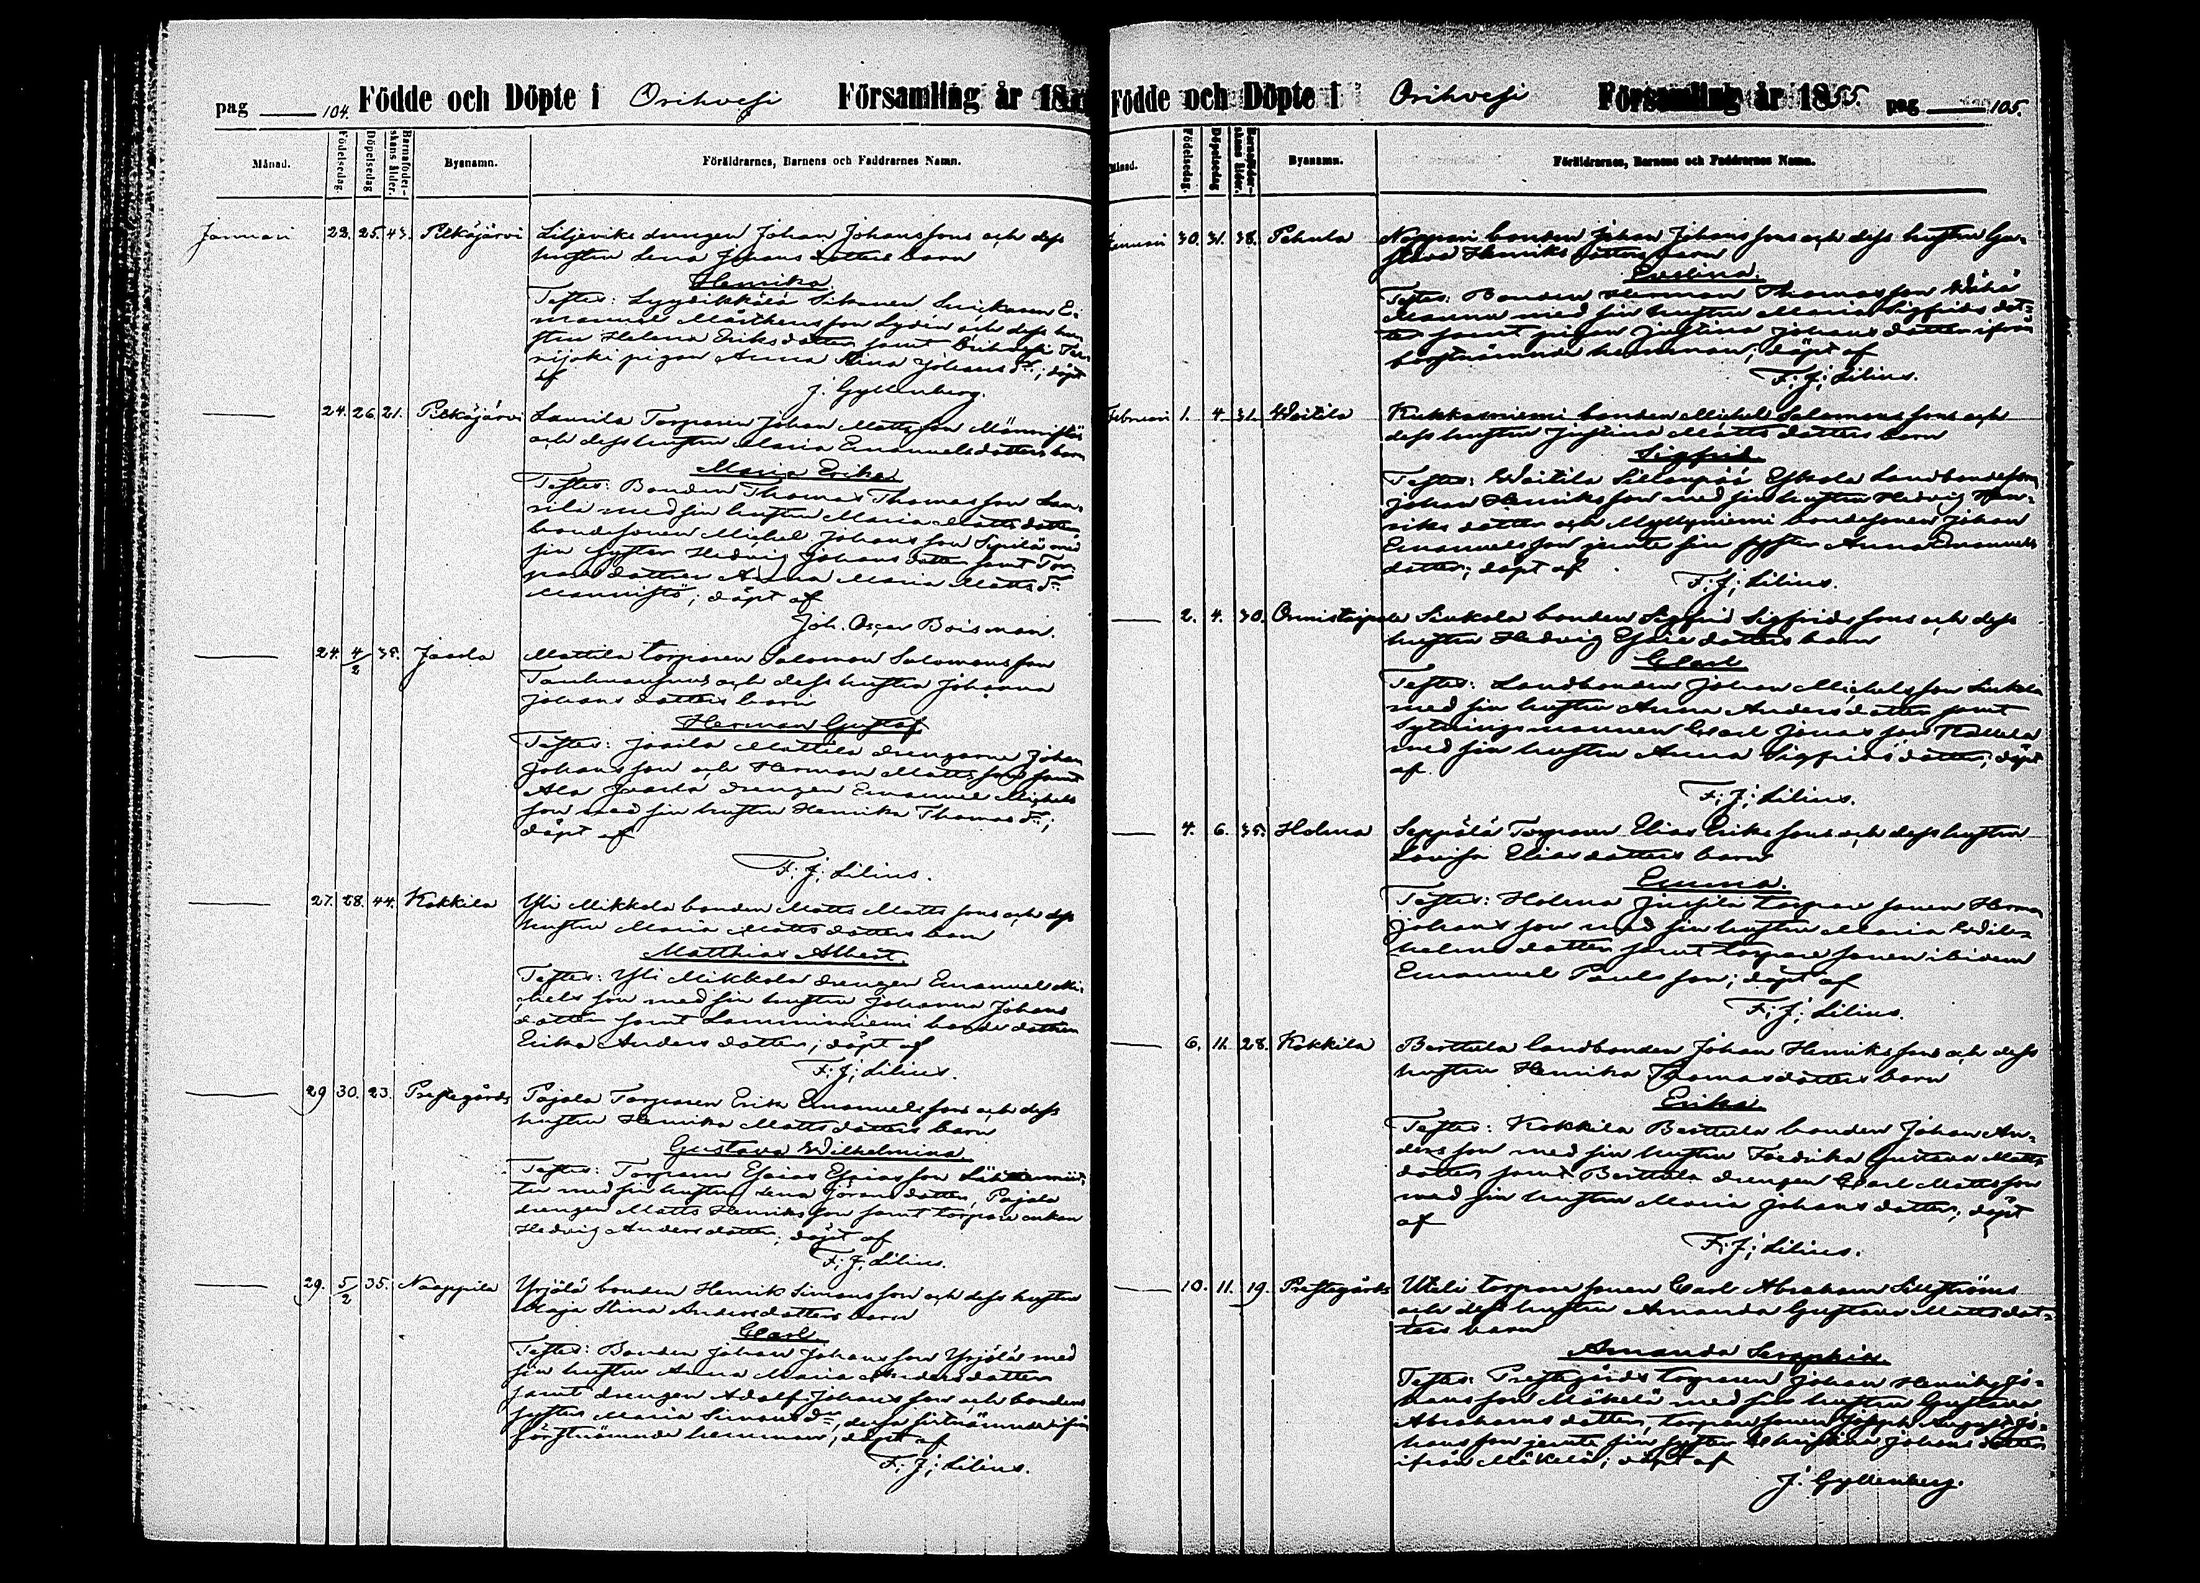 pag 104. Födde och Döpte i Orihvesi Församling år 18
Månad. Födelsedag. Döpelsedag Barnaföderskans ålder. Bysnamn. Föräldrarnes, Barnens och Faddrarnes Namn.
Januari 23. 25. 43. Pilkäjärvi Liljeviks drengen Johan Johanssons och dess
hustru Lena Johans dotters barn
Henrika.
Testes: Lyydikkälä
manuel Mårthensson Lydén och dess hu-
stru Helena Eriksdotter samt Orihvesi
pigan Anna Stina Johans dr; döpt
af
J. Gyllenberg.
24. 26. 21. Pilkäjärvi Laurila Torparen Johan Mattsson Männistös
och dess hustru Maria Emanuelsdotters barn
Maria Erika
Testes: Bonden Thomas Thomasson Lau-
rila med sin hustru Maria Mattsdotter,
bondesonen Michel Johansson med
sin syster Hedvig Johansdotter samt Tor-
paredottren Anna Maria Matts dr
Männistö; döpt af
Joh. Oscar Boisman.
24. 4/2 35. Jaarla Mattila torparen Salomon Salomonsson
och dess hustru Johanna
Johans dotters barn
Herman Gustaf
Testes: Mattila drengarne Johan
Johansson och Herman Mattsson samt
Ala Jaarla drengen Emanuel Michels
son med sin hustru Henrika Thomas dr;
döpt af
F. J. Lilius.
27. 28. 44. Kokkila Yli Mikkola bonden Matts Matts sons och dess
hustru Maria Mattsdotters barn
Matthias Albert.
Testes: Yli Mikkola drengen Emanuel Mi-
chels son med sin hustru Johanna Johans
dotter samt Lamminniemi bonde dottren
Erika Anders dotter; döpt af
F. J. Lilius.
29 30. 23. Prestegårds Pajala Torparen Erik Emanuels sons och dess
hustru Henrika Mattsdotters barn
Gustava Wilhelmina.
Testes: Torparen Esaias Esaiasson
med sin hustru Lena Jöransdotter, Pajala
drengen Matts Henriksson samt torpare enkan
Hedvig Andersdotter; döpt af
F. J. Lilius.
29. 5/2 35. Naappila Yrjölä bonden Henrik Simonsson och dess hustru
Maja Stina Andersdotters barn
Carl
Testes: Bonden Johan Johansson Yrjölä med
sin hustru Anna Maria Andersdotter
samt drengen Adolf Johansson och bondens
syster Maria Simons dr, dessa sistnämnde ifrån
förstnämnde hemman; döpt af
F. J. Lilius.
Födde och Döpte i Orihvesi Församling år 1855. pag 105.
Månad. Födelsedag. Döpelsedag Barnaföderskans ålder. Bysnamn. Föräldrarnes, Barnens och Faddrarnes Namn.
Januari 30. 31. 38. Pehula bonden Johan Johanssons och dess hustru Gu-
stava Henriks dotters barn
Evelina.
Testes: Bonden Herman Thomasson
Mannu med sin hustru Maria Sigfrids dot-
ter samt pigan Justina Johansdotter ifrån
förstnämnde hemman; döpt af
F. J. Lilius.
Februari 1. 4. 31. Weitila Kukkasniemi bonden Michel Salomonssons och
dess hustru Justina Mattsdotters barn
Sigfrid.
Testes: Weitila Sillanpää Eskola Landbondeson
Johan Henriksson med sin hustru Hedvig Hen-
riks dotter och Myllyniemi bondesonen Johan
Emanuelsson jemte sin syster Anna Emanuels
dotter; döpt af
F. J. Lilius.
2. 4. 30. Onnistaipale Siukola bonden Sigfrid Sigfridssons och dess
hustru Hedvig Esaiedotters barn
Carl
Testes: Landbonden Johan Michelsson Siukola
med sin hustru Anna Andersdotter samt
Sytningsmannen Carl Jonasson
med sin hustru Anna Sigfridsdotter; döpt
af.
F. J. Lilius.
4. 6. 35. Holma Seppälä Torparen Elias Erikssons och dess hustru
Lovisa Eliasdotters barn
Emma.
Testes: Holma torpare sonen Herman
Johansson med sin hustru Maria Wil-
helmsdotter samt torpare sonen ibidem
Emanuel Paulsson; döpt af
F. J. Lilius.
6. 11. 28. Kokkila Berttula landbonden Johan Henrikssons och dess
hustru Henrika Thomasdotters barn
Erika.
Testes: Kokkila Berttula bonden Johan An-
dersson med sin hustru Fredrika Gustava Matts
dotter samt Berttula drengen Carl Mattsson
med sin hustru Maria Johans dotter; döpt
af
F. J. Lilius.
10. 11. 19. Prestegårds torpare sonen Carl Abraham
och dess hustru Amanda Gustava Mattsdot-
ters barn
Amanda Seraphia.
Testes: Prestegårds torparen Johan Henrik Jo-
hansson Mäkelä med sin hustru Gustava
Abrahamsdotter, torparesonen Joseph August Jo-
hansson jemte sin syster Christina Johansdotter
ifrån Mäkelä; döpt af
J. Gyllenberg.